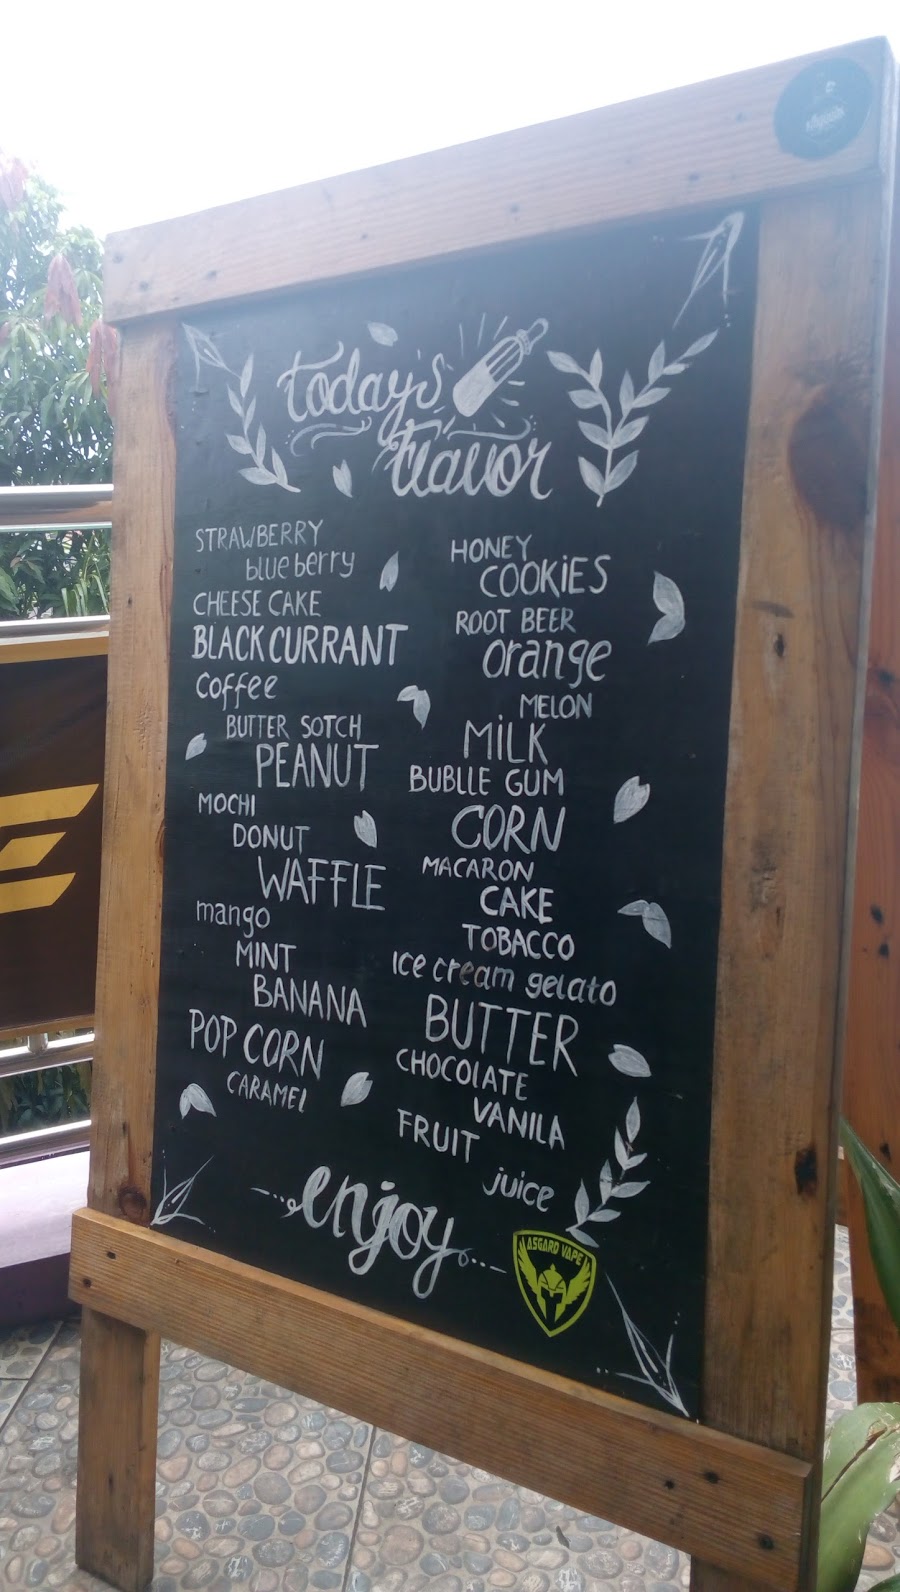 today's
flavor
STRAWBERRY
blueberry
CHEESE CAKE
BLACKCURRANT
Coffee
BUTTER SOTCH
PEANUT
MOCHI
DONUT
WAFFLE
mango
MINT
BANANA
POP CORN
CARAMEL
HONEY
COOKiES
ROOT BEER
Orange
MELON
MiLK
BUBLLE GUM
CORN
MACARON
CAKE
TOBACCO
Ice cream gelato
BUTTER
CHOCOLATE
VANILA
FRUIT
juice
enjoy
ASGARD VAPE